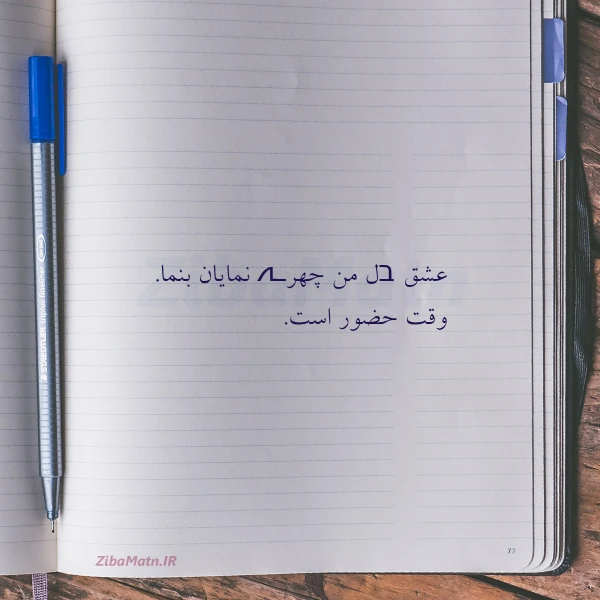 عشق בل من چهره نمایان بنما.
وقت حضور است.
ZibaMatn.IR